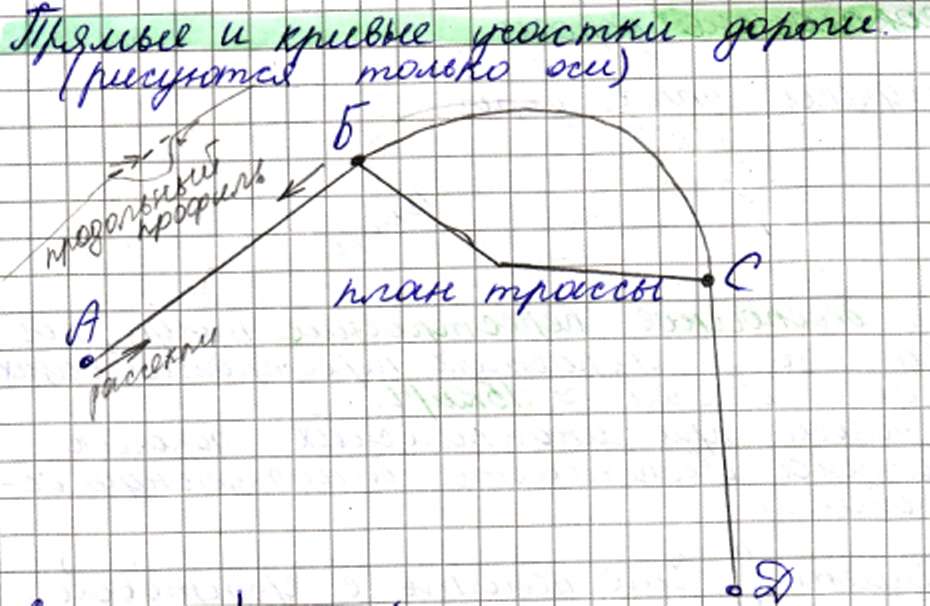 Прямые и кривые участки дороги.
(рисуются только оси)
Б
продольный
профиль
А
план трассы
С
D